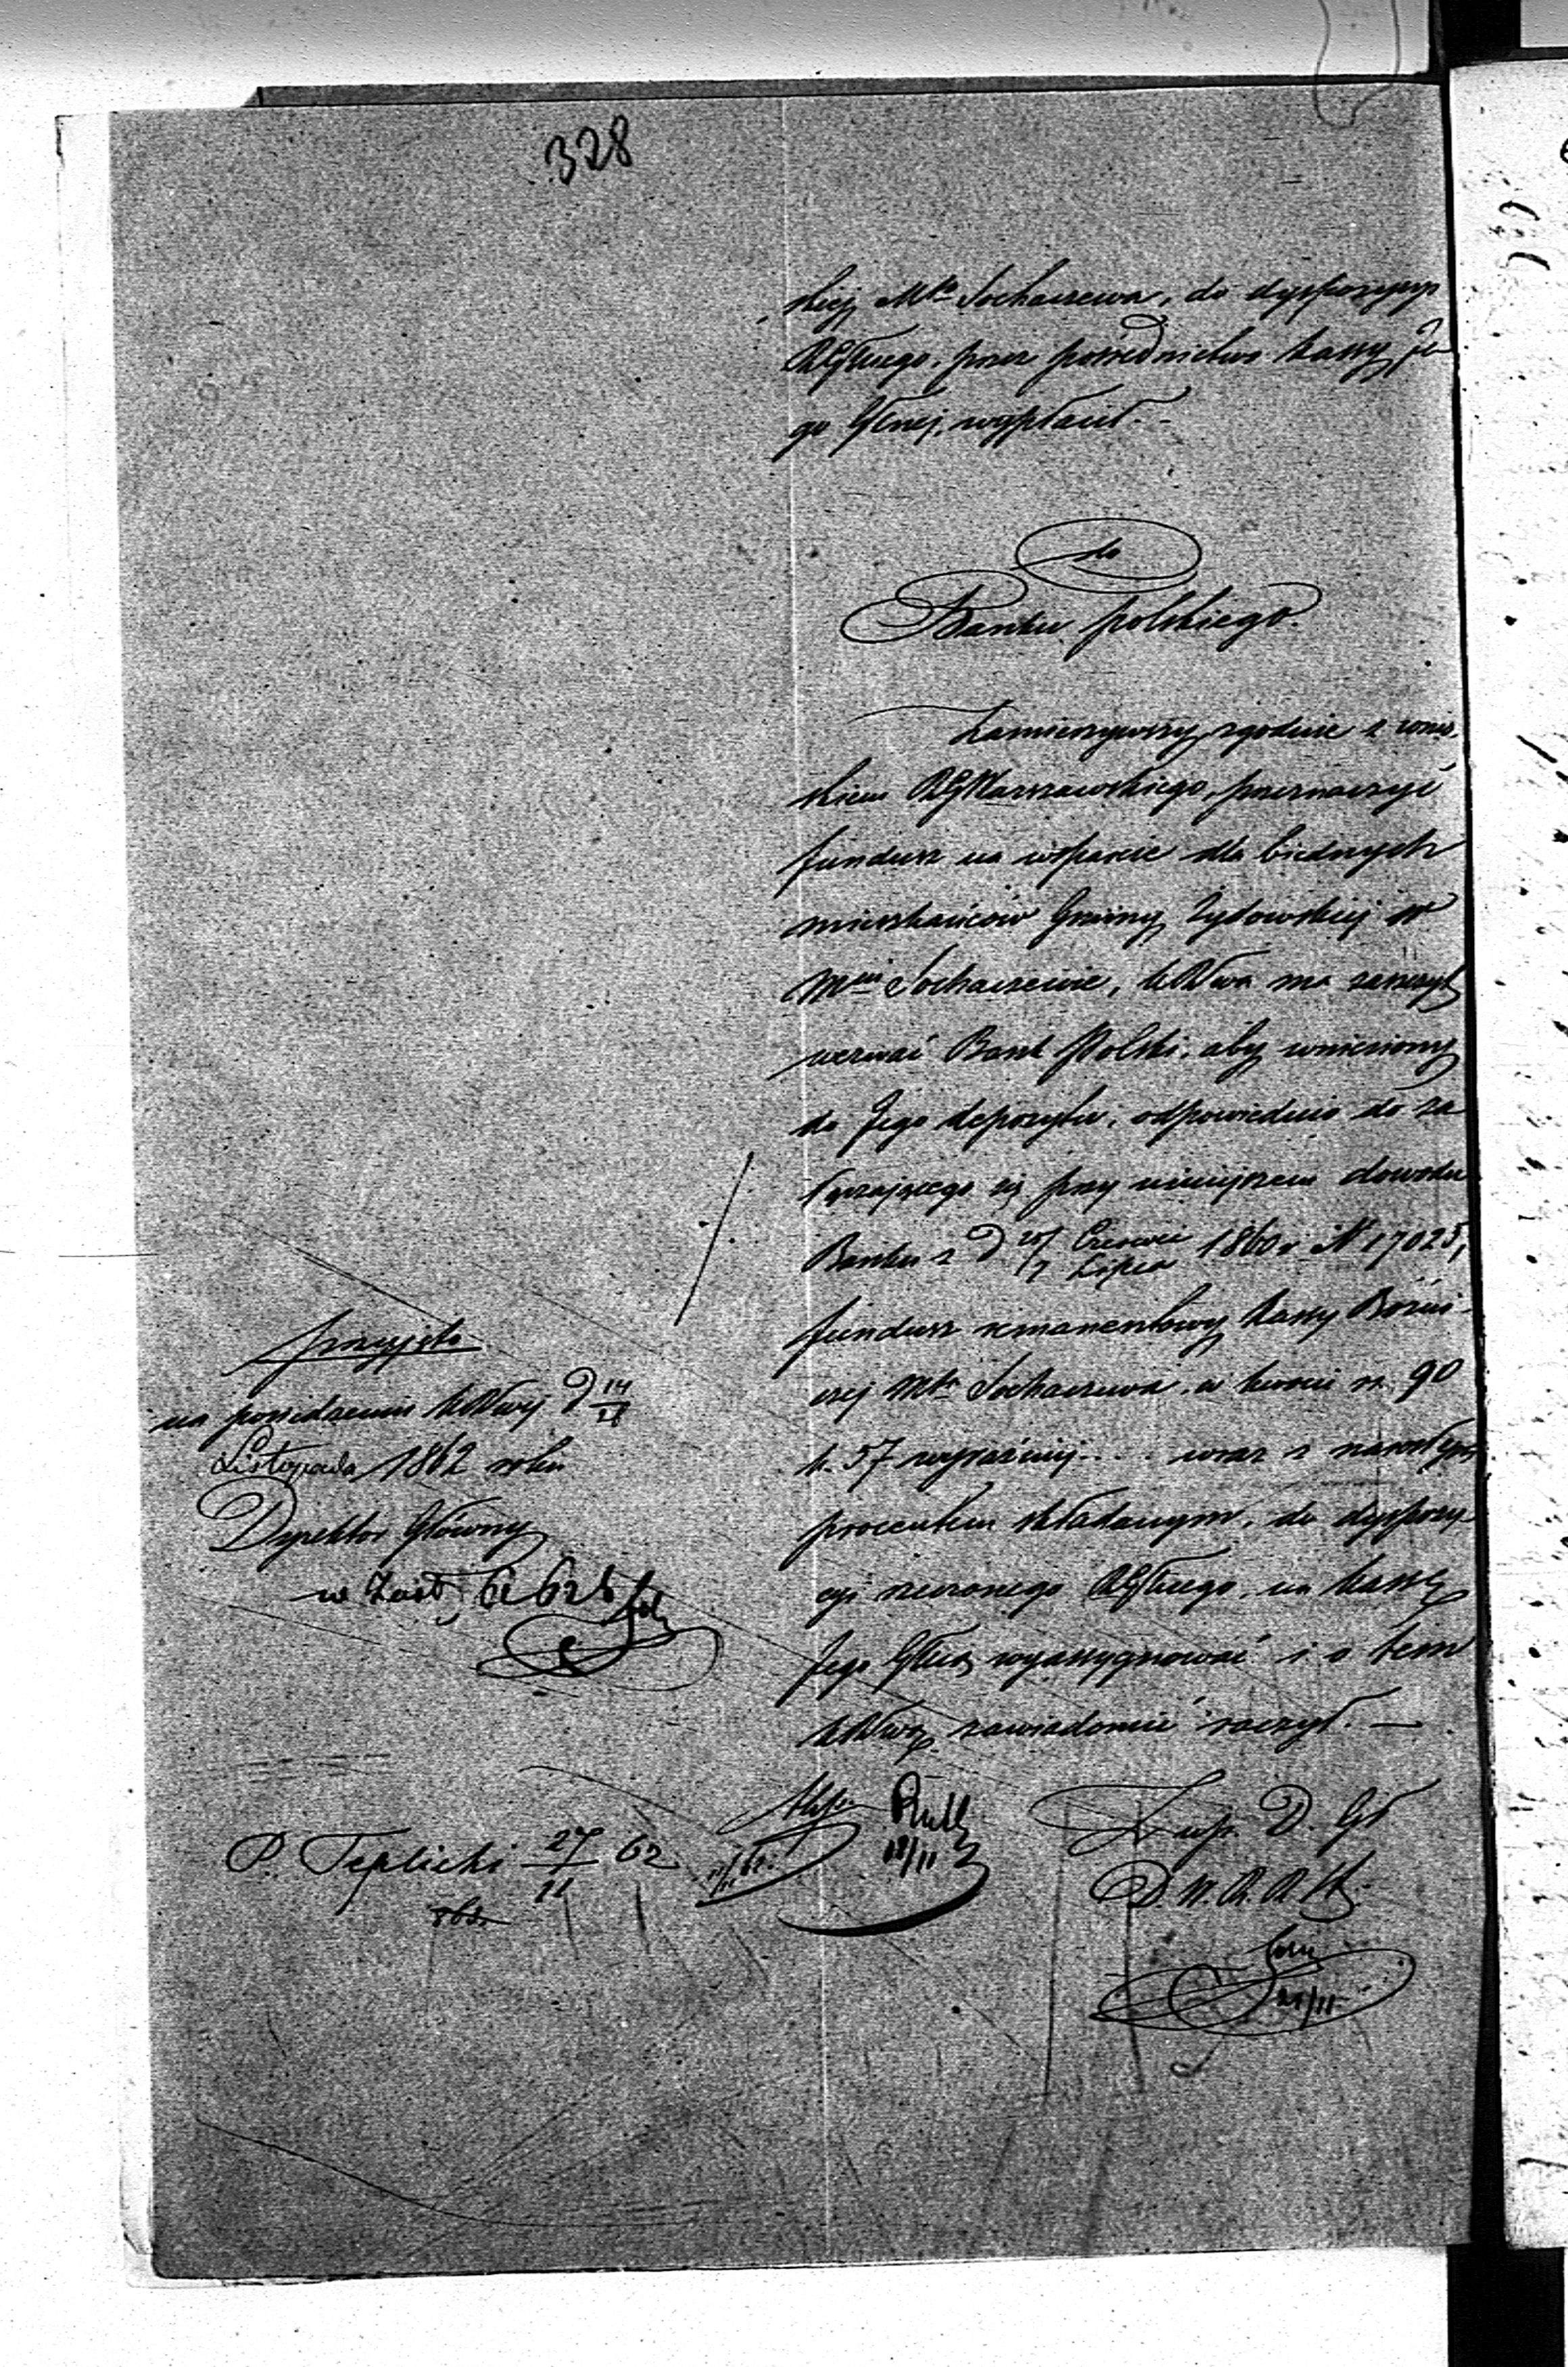 328
skiej Mta Sochaczewa, do dyspozycyi
RGłnego, przez pośrednictwo Kassy Je
go Głnej, wypłacił.
do
Banku polskiego.
Zamierzywszy zgodnie z wnio
skiem RGWarszawskiego, przeznaczyć
fundusz na wsparcie dla biednych
mieszkańców Gminy Żydowskiej w
Mcie Sochaczewie, ma zaszczyt
wezwać Bank Polski, aby wniesiony
do Jego depozytu, odpowiednio do za
łączającego się przy niniejszem dowodu
Banku z D Czerwca 1860 r N 17025,
7 Lipca
fundusz remanentowy Kassy Bóżni
czej Mta Sochaczewa, w kwocie rs. 90
k. 57 wyraźniej . . . . wraz z narosłym
procentem składanym, do dyspozy
cyi rzeczonego na Kassę
Jego wyassygnować i o tem
zawiadomić raczył. —
przyjęto
na posiedzeniu D 14
Listopada 1862 roku
Dyrektor Główny
w Zast.
P. Teplicki 27/11 62
18/11
Zup. D. Gł
21/11